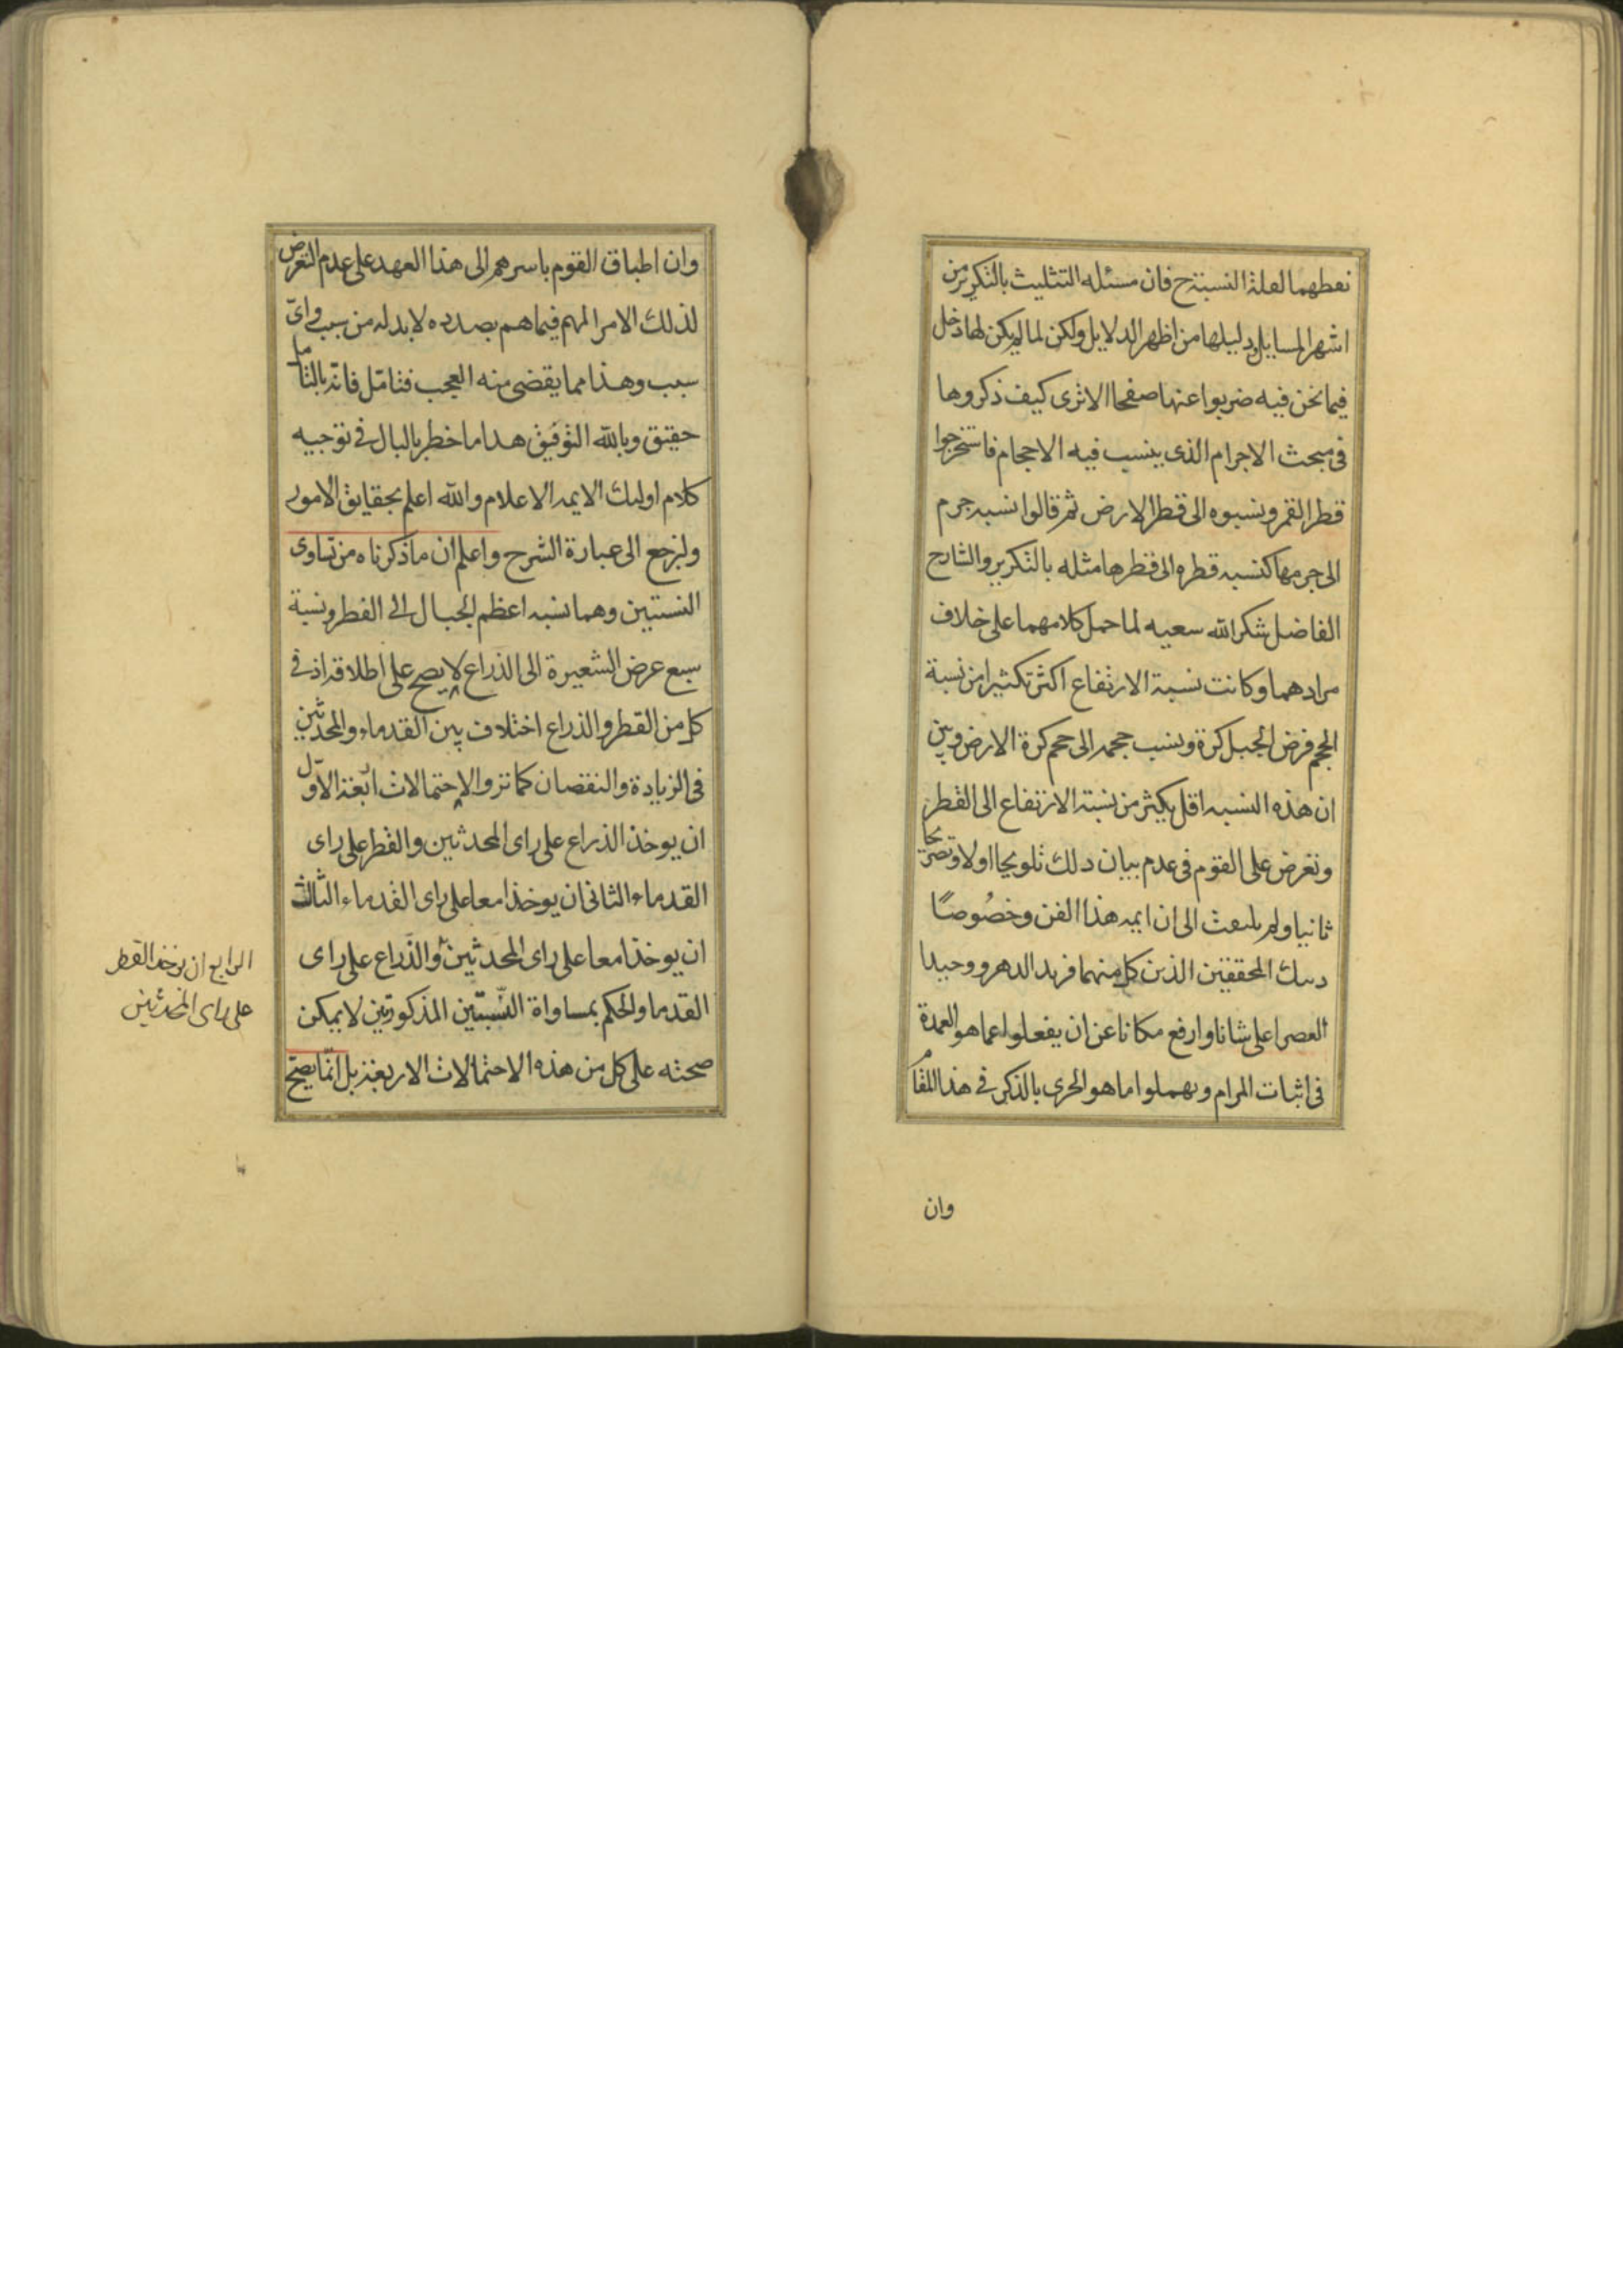 نعطهما لعلة النسبة ح فان مسئله التثليث بالتكرير من
اشهر المسايل و دليلها من اظهر الدلايل ولكن لما لم يكن لها دخل
فيما نحن فيه ضربوا عنها صفحا الا ترى كيف ذكروها
فى مبحث الاجرام الذى ينسب فيه الاحجام فاستخرجوا
قطر القمر ونسبوه الى قطر الارض ثم قالوا نسبه جرم
الى جرمها كنسبه قطره الى قطرها مثله بالتكرير والشارح
الفاضل شكر الله سعيه لما حمل كلامهما على خلاف
مرادهما وكانت نسبة الارتفاع اكثر تكثيرا من نسبة
الحجم فرض الجبل كرة ونسب حجمه الى حجم كرة الارض وبين
ان هذه النسبه اقل بكثير من نسبة الارتفاع الى القطر
وتعرض على القوم فى عدم بيان دلك تلويحا اولا وتصريحا
ثانيا ولم يلتفت الى ان ايمه هذا الفن وخصُوصًا
المحققين الذين كل منهما فريد الدهر ووحيد
العصر اعلى شانا وارفع مكانا عن ان يغفلوا عما هو العمدة
فى اثبات المرام ويهملوا ما هو الحرى بالذكر فى هذا المقام
وان
وان اطباق القوم باسرهم الى هذا العهد على عدم التعرض
لذلك الامر المهم فيما هم بصدده لا بد له من سبب واىّ
سبب وهذا مما يقضى منه العجب فتامّل فانّه بالتامل
حقيق وبالله التوفيق هدا ما خطر بالبال فى توجيه
كلام اوليك الايمه الاعلام والله اعلم بحقايق الامور
ولنرجع الى عبارة الشرح واعلم ان ما ذكرناه من تساوى
النسبتين وهما نسبه اعظم الجبال الى القطر ونسبة
سبع عرض الشعيرة الى الذراع لا يصح على اطلاقه اذ فى
كل من القطر والذراع اختلاف بين القدماء والمحدثين
فى الزيادة والنقصان كما تر والاحتمالات اربعة الاوّل
ان يوخذ الذراع على راى المحدثين والقطر على راى
القدماء الثانى ان يوخذا معا على راى القدماء الثالث
ان يوخذا معا على راى المحدثين والذراع على راى
القدما والحكم بمساواة النسبتين المذكورتين لا يمكن
صحته على كل من هذه الاحتمالات الاربعة بل انما يصح
الرابع ان يوخذ القطر
على راى المحدثين